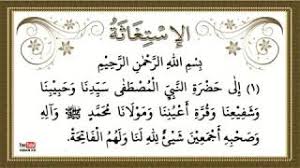 الإِسْتِغَاثَةُ
بِسْمِ اللهِ الرَّحْمٰنِ الرَّحِيْمِ
(١) إِلَى حَضْرَةِ النَّبِيِّ الْمُصْطَفَى سَيِّدِنَا وَحَبِيْبِنَا
وَشَفِيْعِنَا وَقُرَّةِ أَعْيُنِنَا وَمَوْلَانَا مُحَمَّدٍ ﷺ وَآلِهِ
وَصَحْبِهِ أَجْمَعِيْنَ شَيْئٌ لِلهِ لَنَا وَلَهُمُ الْفَاتِحَةُ.